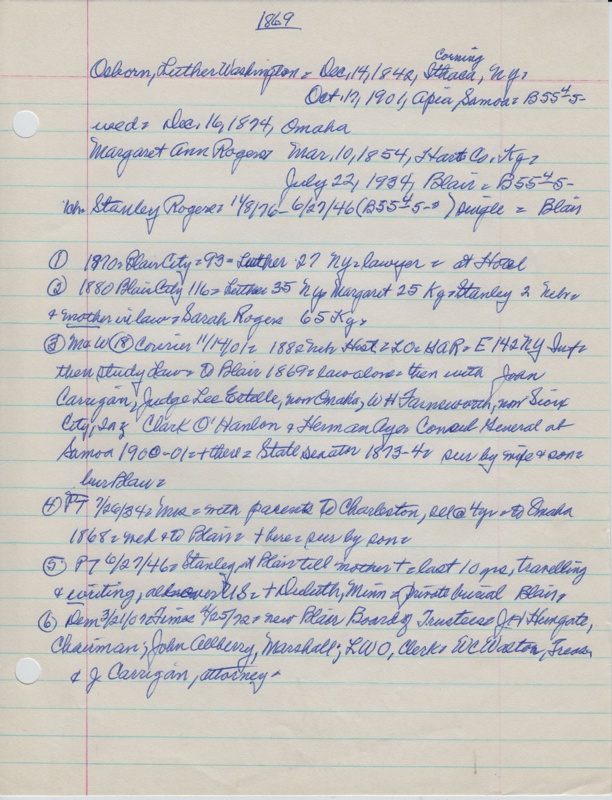 1869
Corning
Osborn, Luther Washington = Dec. 14, 1842, Ithaca, Ny =
Oct. 17, 1901, Apia, Samoa = B55-4-5-
wed = Dec. 16, 1874, Omaha
Margaret Ann Rogers Mar. 10, 1854, Hart Co. Ky =
July 22, 1934, Blair = B55-4-5-
1ch = Stanley Rogers = 11/8/76 - 6/27/46 (B55-4-5- ) single = Blair
① 1870 = Blair City = 93 = Luther 27 Ny = lawyer = at Hotel
② 1880 Blair City 116 = Luther 35 Ny Margaret 25 Ky = Stanley 2 Nebr =
& mother in law = Sarah Rogers 65 Ky =
③ 18 Courier 11/14/01 = 1882 Nebr Hist = LO = GAR = E 142 NY Inf =
then study Law = to Blair 1869 = law alone = then with John
Carrigan, Judge Lee Estelle, now Omaha, W H Farnsworth, now Sioux
City, Clark O'Hanlon & Herman Aye = Consul General at
Samoa 1900-01 = + there = State Senator 1873-4 = sur by wife & son =
bur Blair =
④ PT 7/26/34 = Mrs = with parents to Charleston, @ 4 yr = to Omaha
1868 = wed & to Blair = + here = sur by son =
⑤ PT 6/27/46 = Stanley, at Blair till mother + = last 10 yrs, travelling
& writing, all over US = + Duluth, Minn = private burial Blair =
⑥ Dem 3/21/07 = Times 4/25/72 = new Blair Board of Trustees = J H Hungate,
Chairman; John Allberry, Marshall; LWO, Clerk = WC Walton, Treas,
& J. Carrigan, attorney =